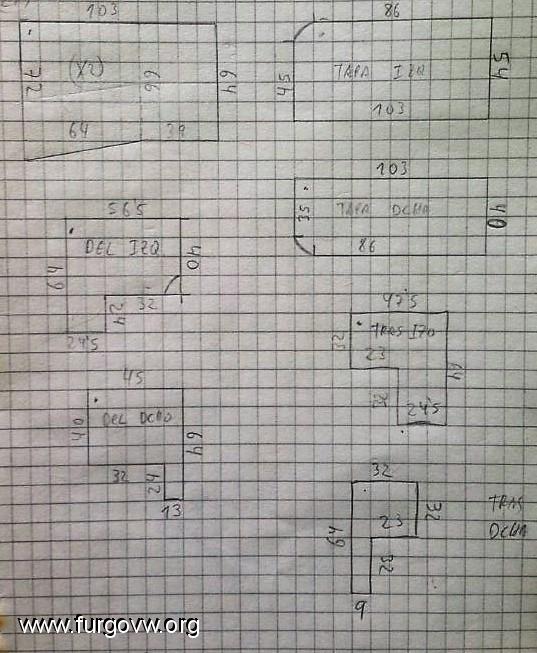 103
72
(X2)
66
64
64
39
86
45
TAPA IZQ
54
103
103
35
TAPA DCHA
40
86
56'5
DEL IZQ
64
40
32
24
24'5
47'5
32
TRAS IZQ
23
64
32
24'5
45
40
DEL DCHO
64
32
24
13
32
64
23
32
32
9
TRAS
DCHA
www.furgovw.org